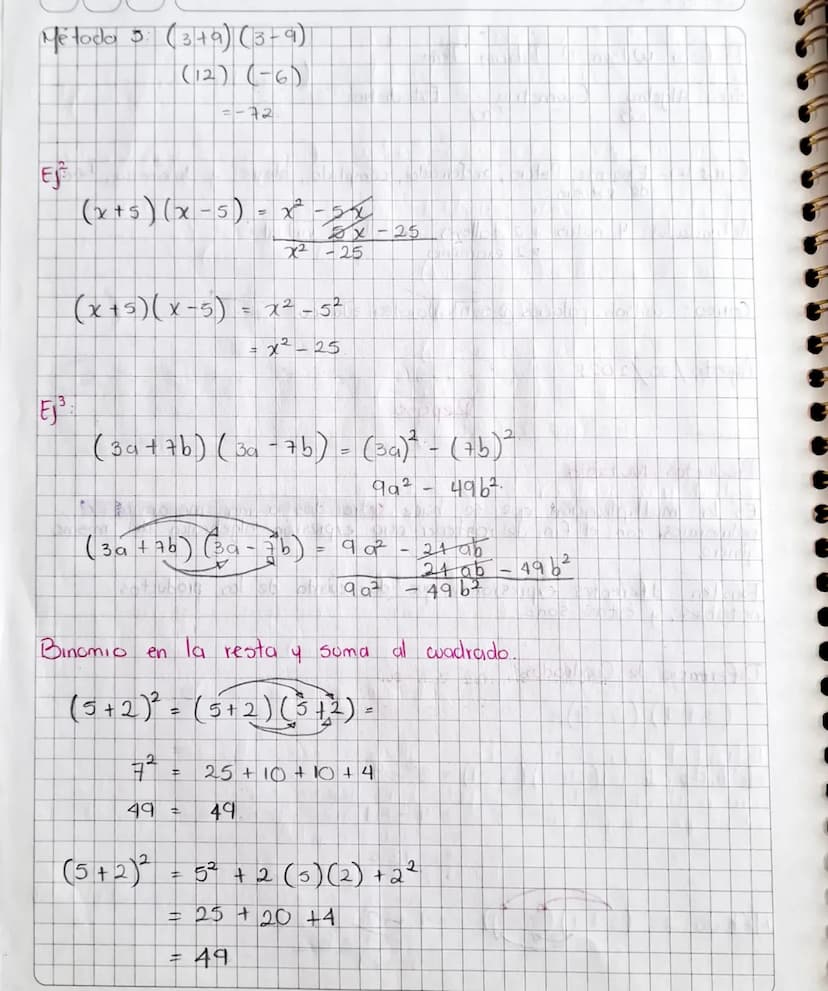 Método 3: (3+9)(3-9)
(12) (-6)
= -72
Ej²:
(x+5)(x-5) = x² - 5x
5x - 25
x² - 25
(x+5)(x-5) = x² - 5²
= x² - 25
Ej³:
(3a+7b)(3a-7b) = (3a)² - (7b)²
9a² - 49b².
(3a+7b)(3a-7b) = 9a² - 21ab
21ab - 49b²
9a² - 49b²
Binomio en la resta y suma al cuadrado.
(5+2)² = (5+2)(5+2) =
7² = 25 + 10 + 10 + 4
49 = 49
(5+2)² = 5² + 2(5)(2) + 2²
= 25 + 20 + 4
= 49